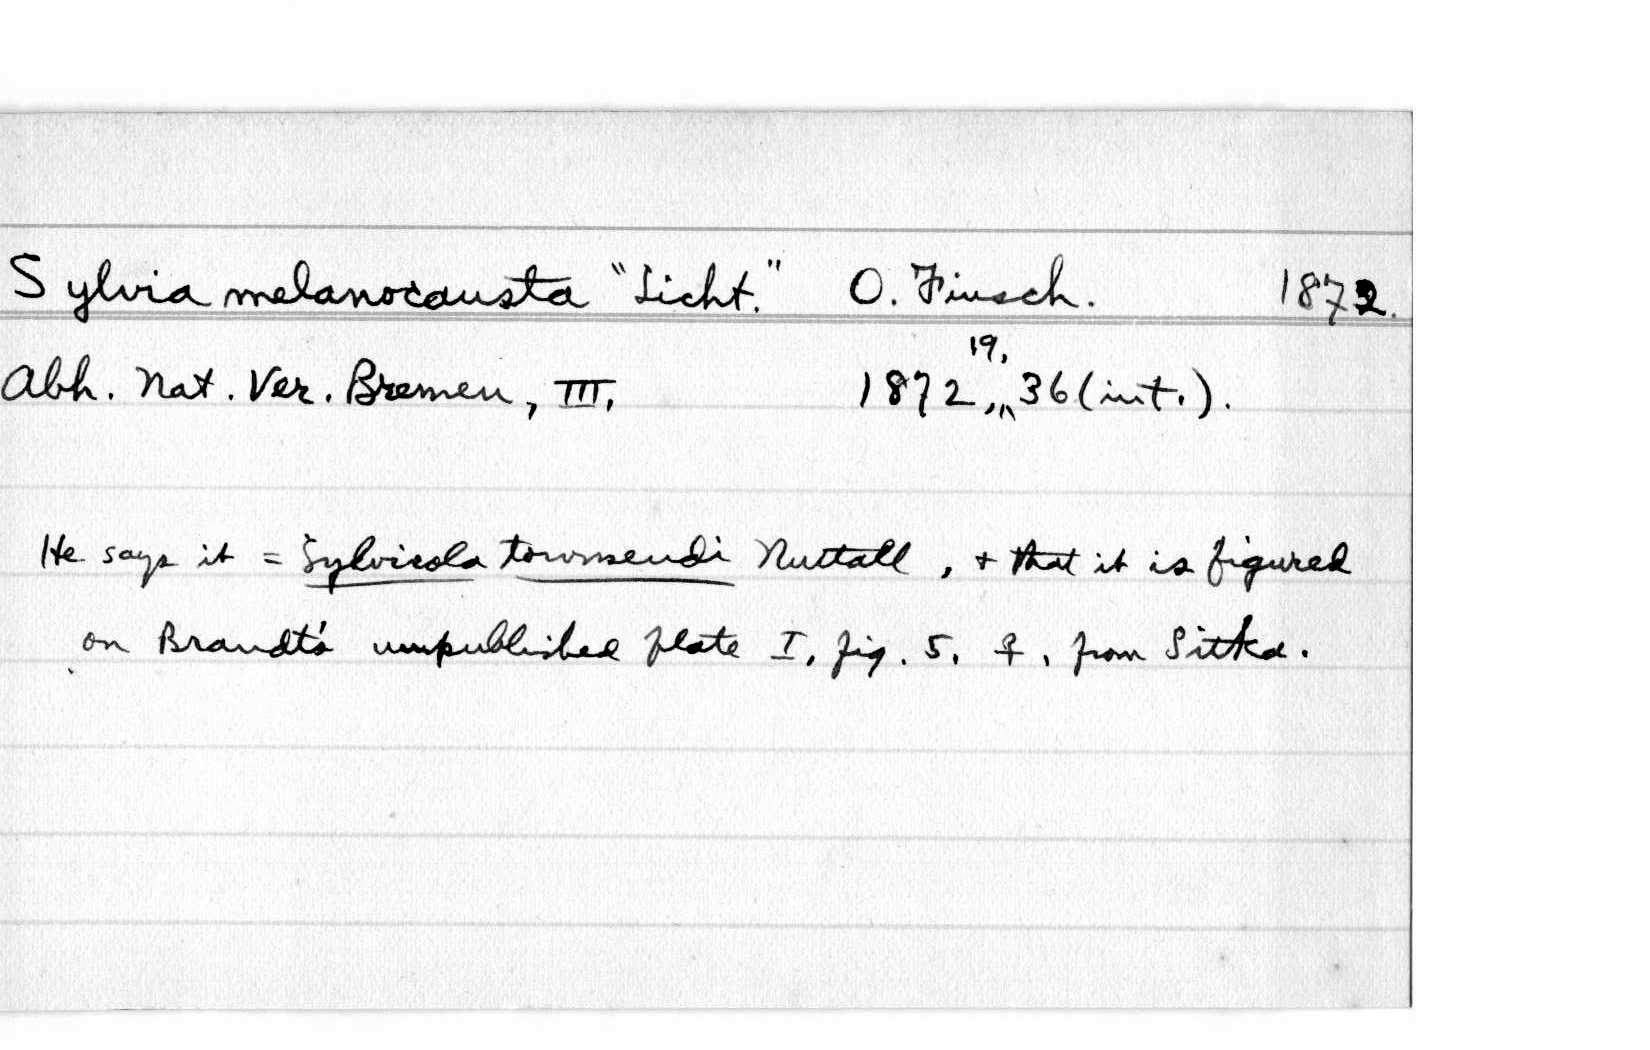 Sylvia melanocausta "Licht." O. Finsch. 1872.
Abh. Nat. Ver. Bremen, III, 1872, 19, 36 (int.).
He says it = Sylvicola townsendi Nuttall, + that it is figured
on Brandt's unpublished plate I, fig. 5. ♀, from Sitka.